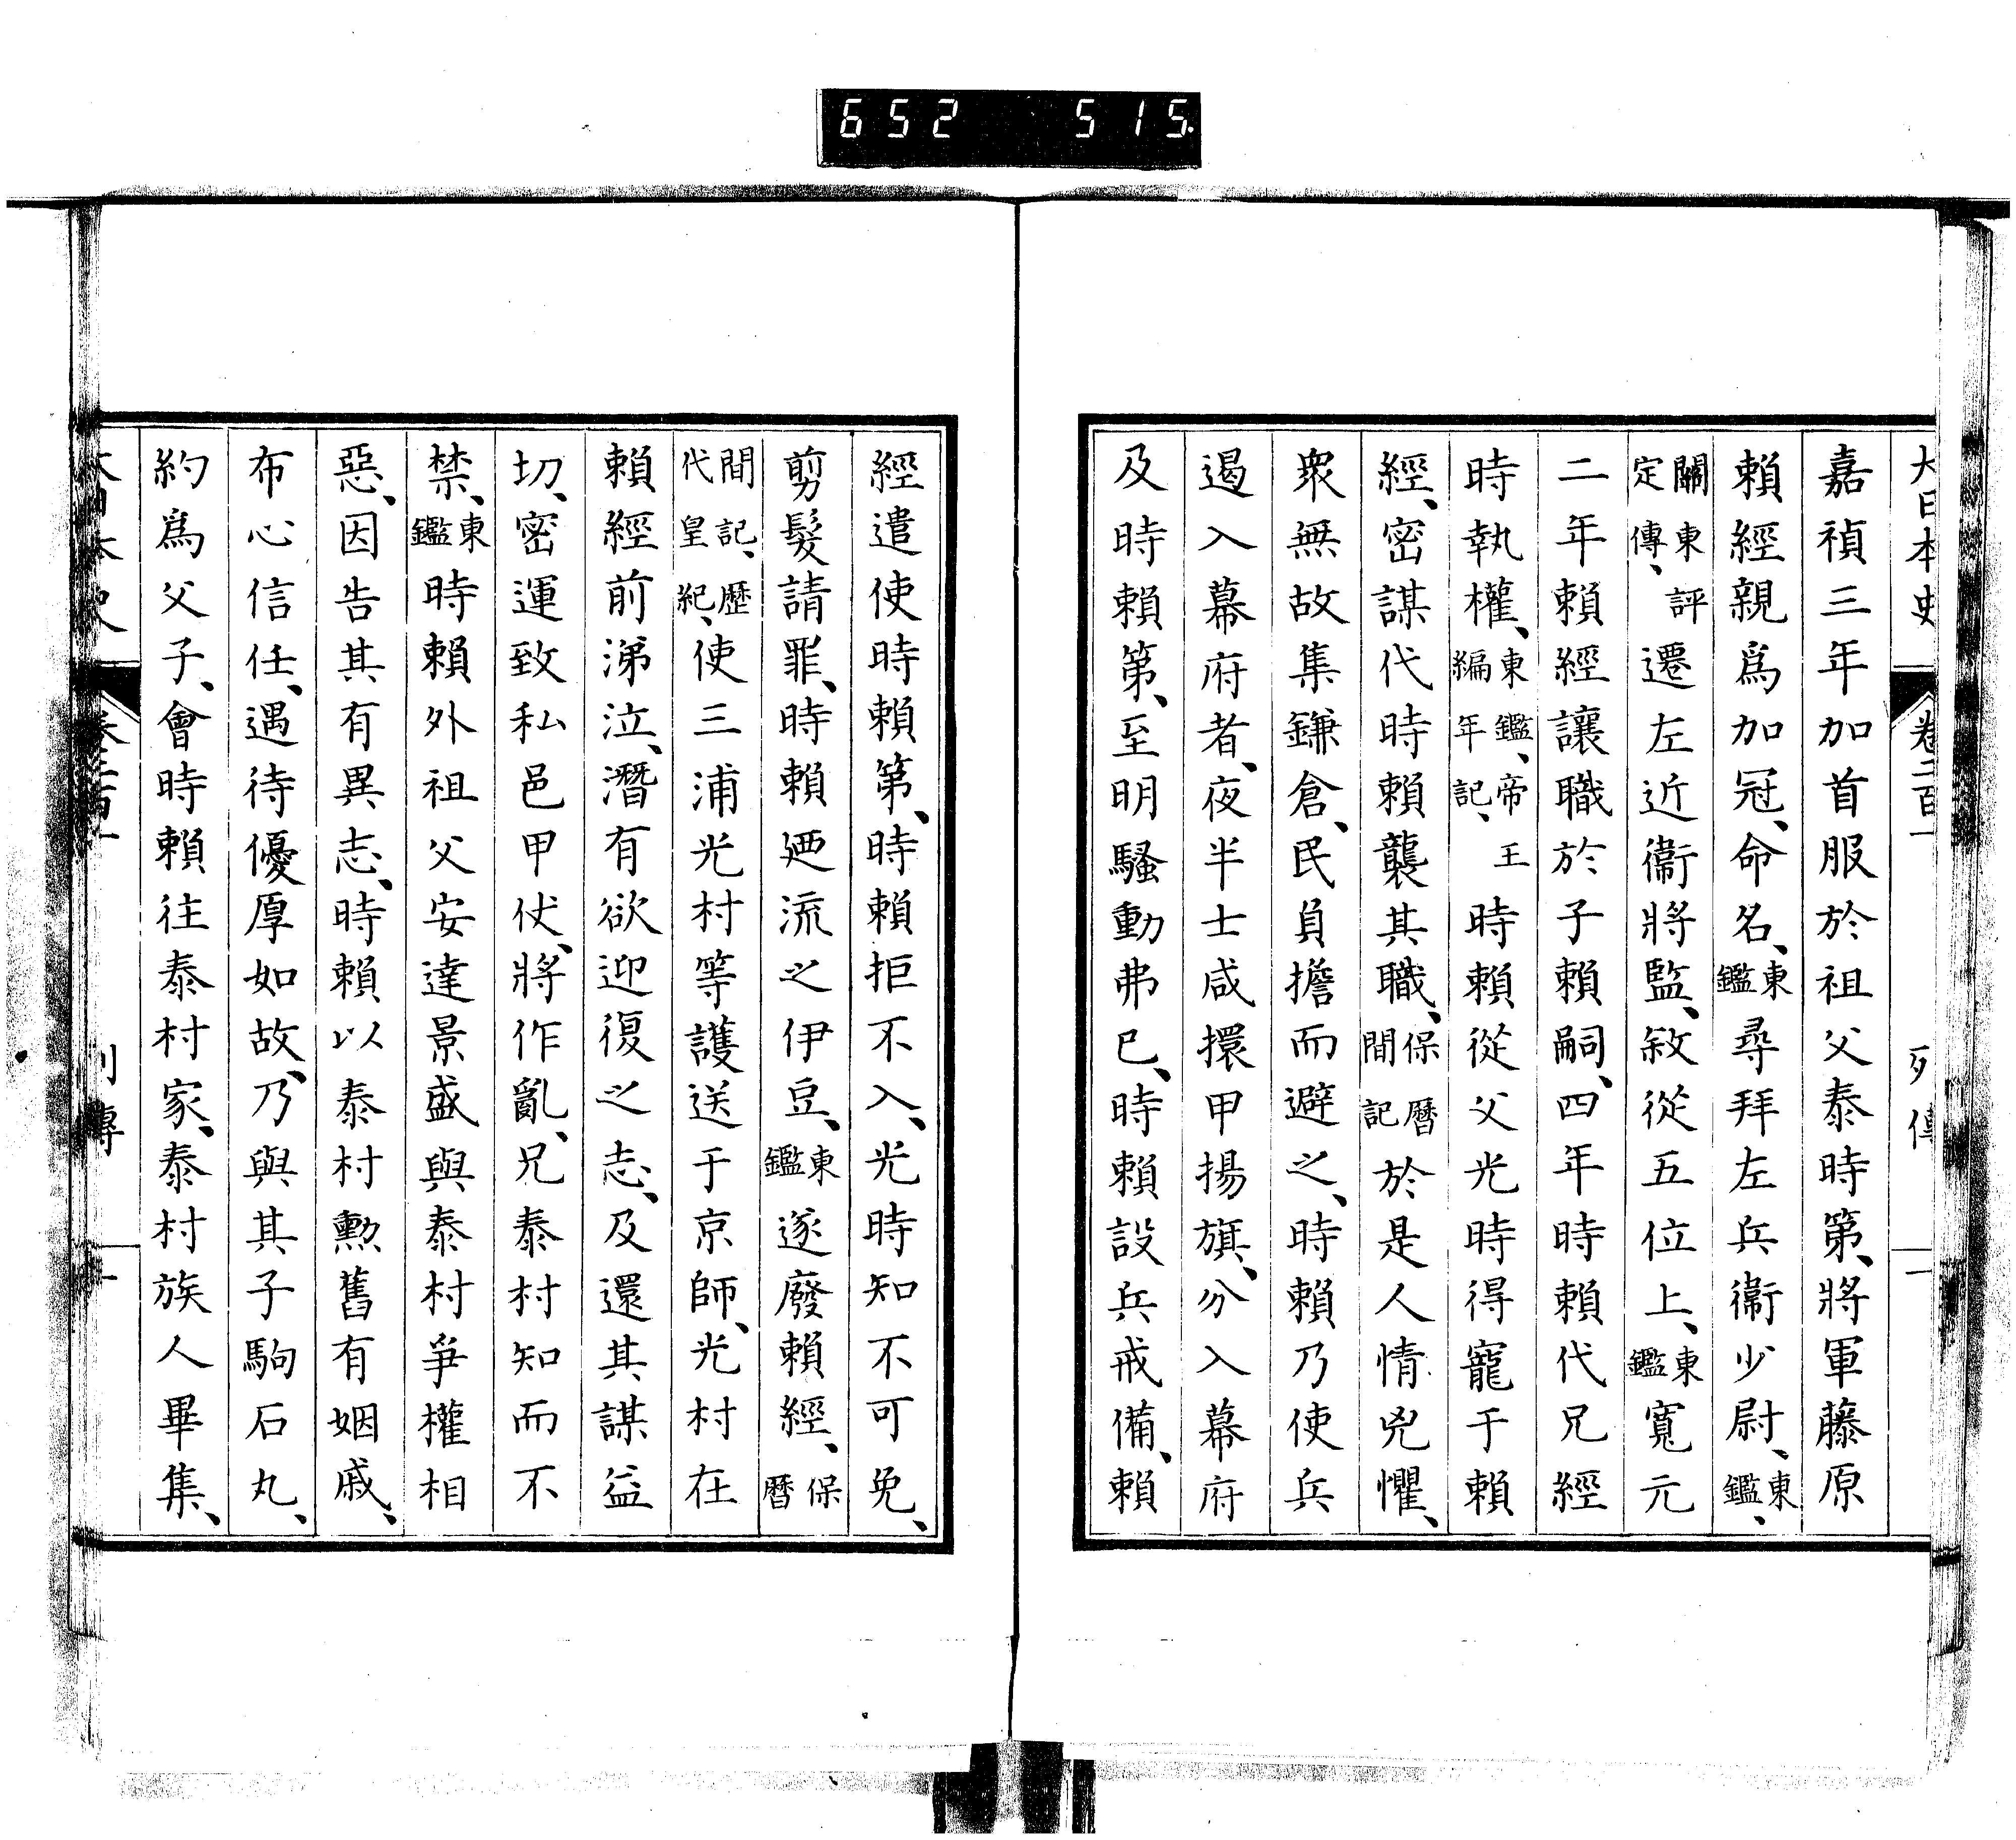 652 515.
大日本史 卷二百一 列傳 一
嘉禎三年加首服於祖父泰時第、將軍藤原
賴經親爲加冠、命名、東鑑尋拜左兵衞少尉、東鑑、
關東評定傳、遷左近衞將監、敘從五位上、東鑑寬元
二年賴經讓職於子賴嗣、四年時賴代兄經
時執權、東鑑、帝王編年記、時賴從父光時得寵于賴
經、密謀代時賴襲其職、保曆間記於是人情兇懼、
衆無故集鎌倉、民負擔而避之、時賴乃使兵
遏入幕府者、夜半士咸擐甲揚旗、分入幕府
及時賴第、至明騷動弗已、時賴設兵戒備、賴
經遣使時賴第、時賴拒不入、光時知不可免、
剪髮請罪、時賴廼流之伊豆、東鑑遂廢賴經、保曆
間記、歷代皇紀、使三浦光村等護送于京師、光村在
賴經前涕泣、潛有欲迎復之志、及還其謀益
切、密運致私邑甲仗、將作亂、兄泰村知而不
禁、東鑑時賴外祖父安達景盛與泰村爭權相
惡、因告其有異志、時賴以泰村勲舊有姻戚、
布心信任、遇待優厚如故、乃與其子駒石丸、
約爲父子、會時賴往泰村家、泰村族人畢集、